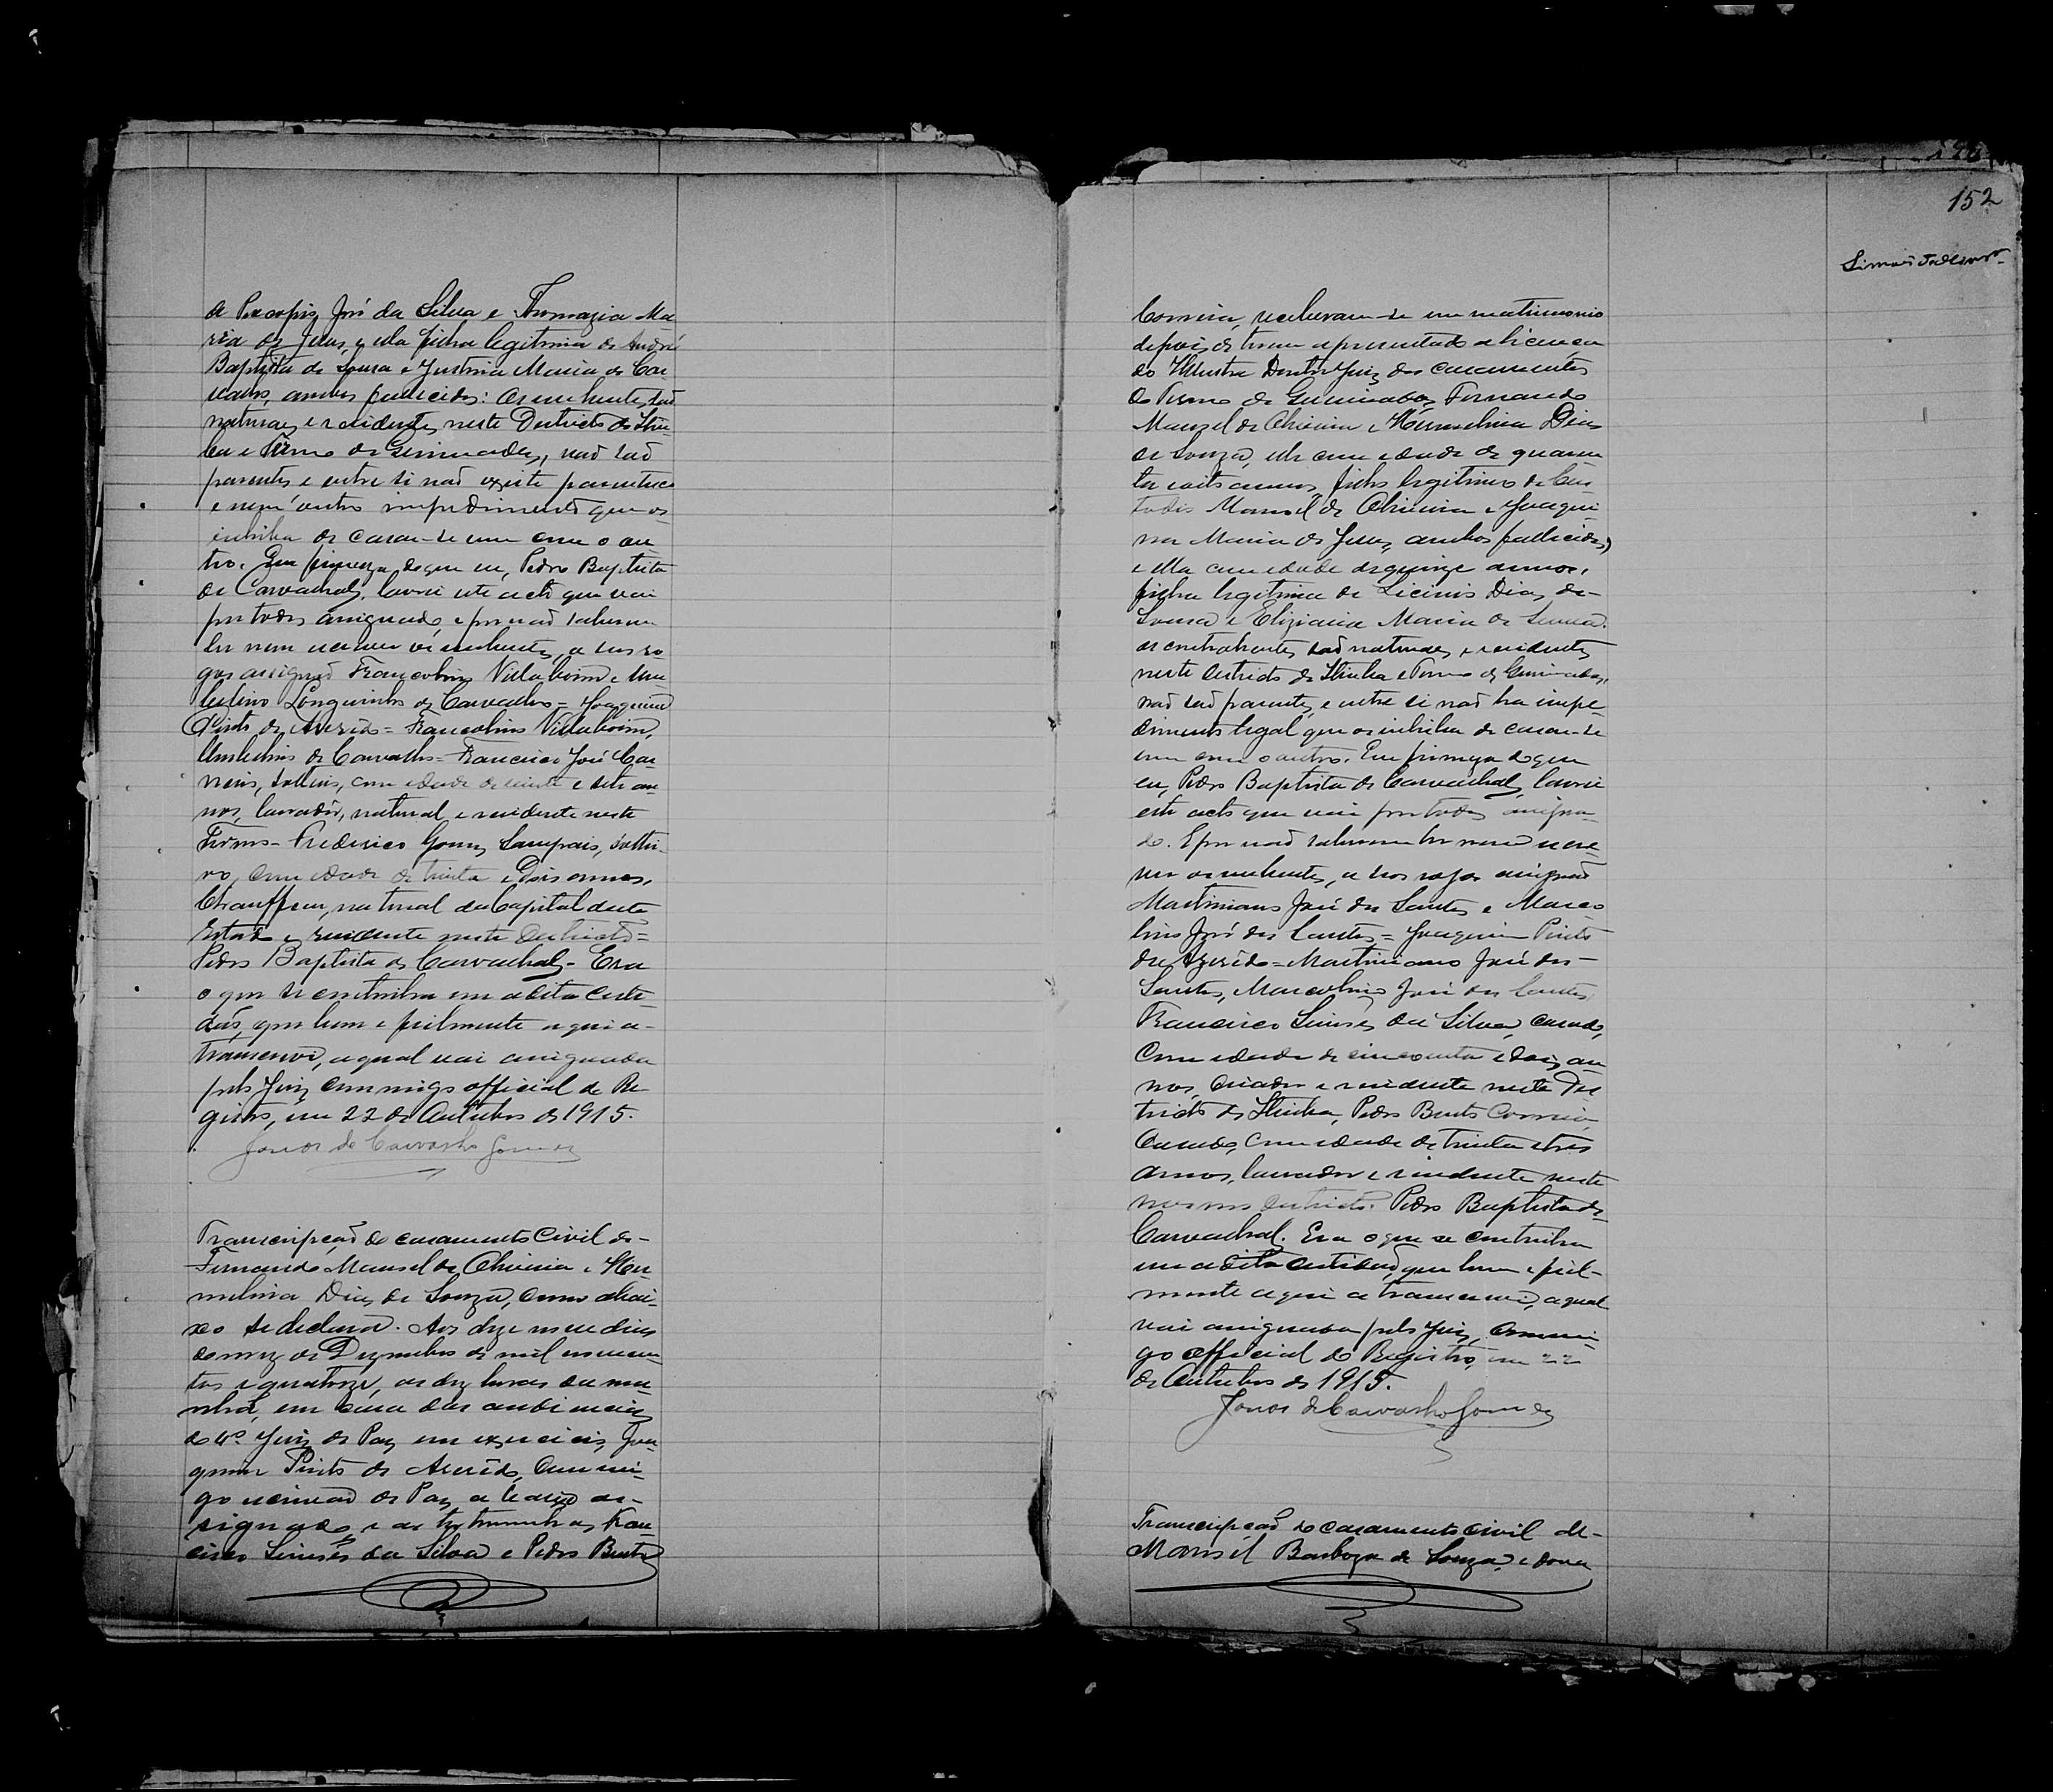 de Procopio José da Silva e Thomazia Ma
ria de Jesus, e ella filha legitima de André
Baptista de Sousa e Justina Maria de Car
valho, ambos fallecidos: os nubentes, saõ
naturaes e residentes neste Destricto de
e Termo de naõ saõ
parentes e entre si naõ existe parentesco
e nem outro impedimento que os
inhiba de casar-se um com o ou
tro. Em firmeza do que eu, Pedro Baptista
de Carvachal, lavrei este acto que vai
por todos assignado, e por naõ saberem
ler nem escrever os nubentes, a seus ro
gos assignaõ Francolino Villaboim e Um
belino Longuinho de Carvalho = Joaquim
Pinto de Azerêdo = Francolino Villaboim,
Umbelino de Carvalho = Francisco José Car
neiro, solteiro, com idade de vinte e sete an
nos, lavrador, natural e residente neste
Termo - Frederico Gomes Sampaio, soltei-
ro, com idade de trinta e dois annos,
Chauffeur, natural da Capital deste
Estado e residente neste Destricto =
Pedro Baptista de Carvachal - Era
o que se continha em a dita certi
daõ, que bem e fielmente aqui a-
transcrevi, a qual vai assignada
pelo Juiz commigo official de Re
gistro, em 22 de Outubro de 1915.
Jonas de Carvalho Gomes
Transcripçaõ do casamento Civil de -
Fernando Manoel de Oliveira e Her-
melina Dias de Souza, como abai-
xo se declara. Aos deze nove dias
do mez de Dezembro de mil novecen
tos e quatorze, as dez horas da ma-
nhã, em casa das audiencias
do 4º Juiz de Paz em exercicio, Joa
quim Pinto de Azerêdo, commi-
go escrivaõ de Paz a baixo as-
signado, e as testemunhas, Fran
cisco Simões da Silva e Pedro Bento
152
Correia, receberam-se em matrimonio
depois de terem apresentado a licença
do Illustre Doutor Juiz dos casamentos
do Termo de Fernando
Manoel de Oliveira e Hermelina Dias
de Souza, elle com idade de quaren
ta e oito annos, filho legitimo de Cus
todio Manoel de Oliveira e Joaqui
na Maria de Jesus, ambos fallecidos,
e ella com idade de quinze annos,
filha legitima de Licinio Dias de -
Sousa e Eliziaria Maria de
os contrahentes saõ naturaes e residentes
neste destricto de e Termo de
naõ saõ parentes, e entre si naõ ha impe-
dimento legal que os inhiba de casar-se
um com o outro. Em firmeza do que
eu, Pedro Baptista de Carvachal, lavrei
este acto que vai por todos assigna-
do. E por naõ saberem ler nem escre-
ver os nubentes, a seus rogos assignaõ
Martiniano José dos Santos e Marco
lino José dos Santos = Joaquim Pinto
de Azerêdo = Martiniano José dos -
Santos, Marcolino José dos Santos,
Francisco Simões da Silva, casado,
com idade de cincoenta e dois an
nos, criador e residente neste Des
tricto de Pedro Bento Correia,
casado, com idade de trinta e tres
annos, lavrador e residente neste
mesmo destricto. Pedro Baptista de
Carvachal. Era o que se continha
em a dita certidaõ, que bem e fiel-
mente aqui a transcrevi, a qual
vai assignada pelo Juiz, commi-
go official do Registro, em 22
de Outubro de 1915.
Jonas de Carvalho Gomes
Transcripçaõ do casamento civil de -
Manoel Barboza de Souza, e dona